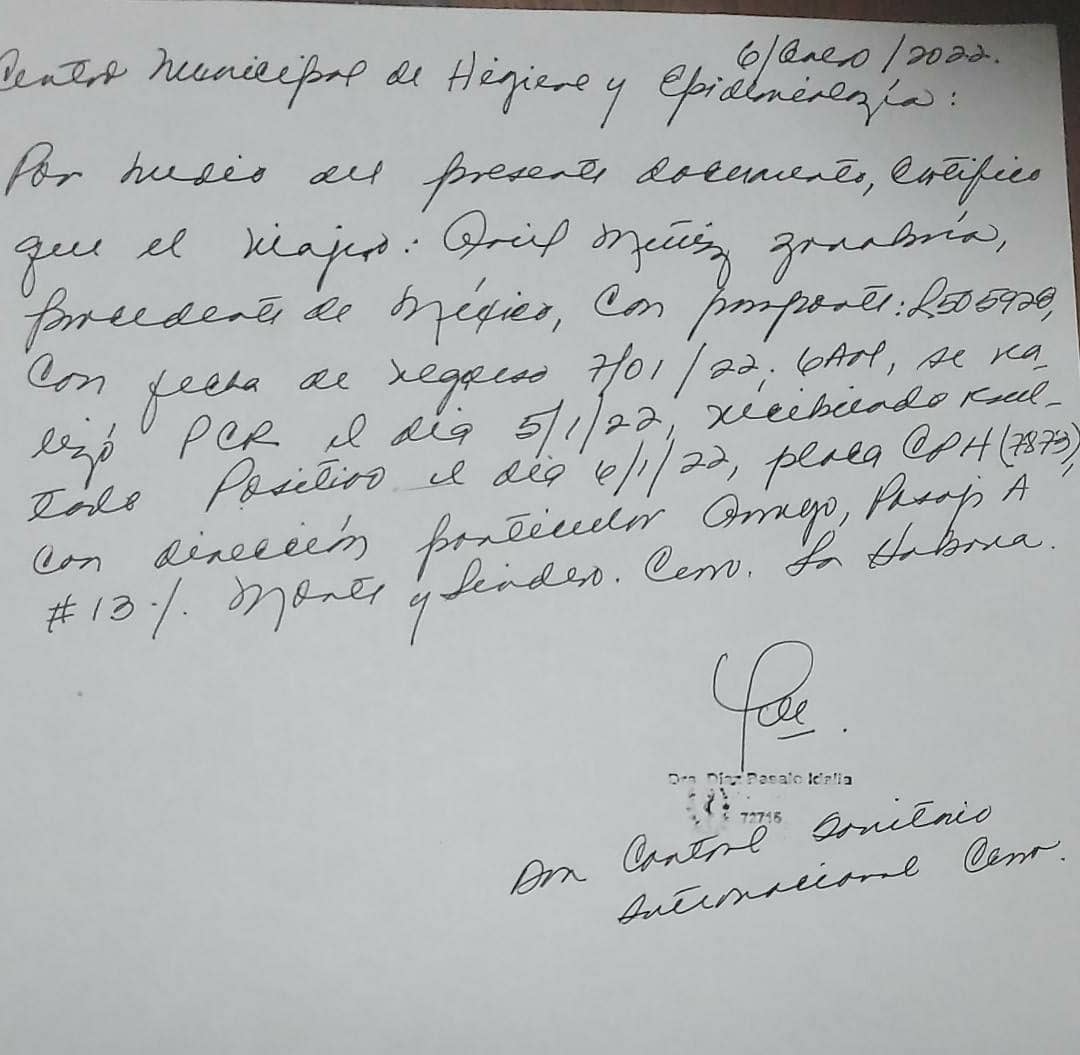 6/Enero/2022.
Centro Municipal de Higiene y Epidemiología:
Por medio del presente documento, Certifico
que el viajero: Oriel Muñiz Zanabria,
Procedente de México, Con pasaporte: L505928,
Con fecha de regreso 7/01/22. 6AM, se rea_
lizó PCR el día 5/1/22, recibiendo resul_
tado Positivo el día 6/1/22, placa CPH (7873),
Con dirección particular Amago, Pasaje A
#13 ./. Monte y Lindero. Cerro. La Habana.
Dra Díaz Idalia
72716
Dra Control Sanitario
Internacional Cerro.